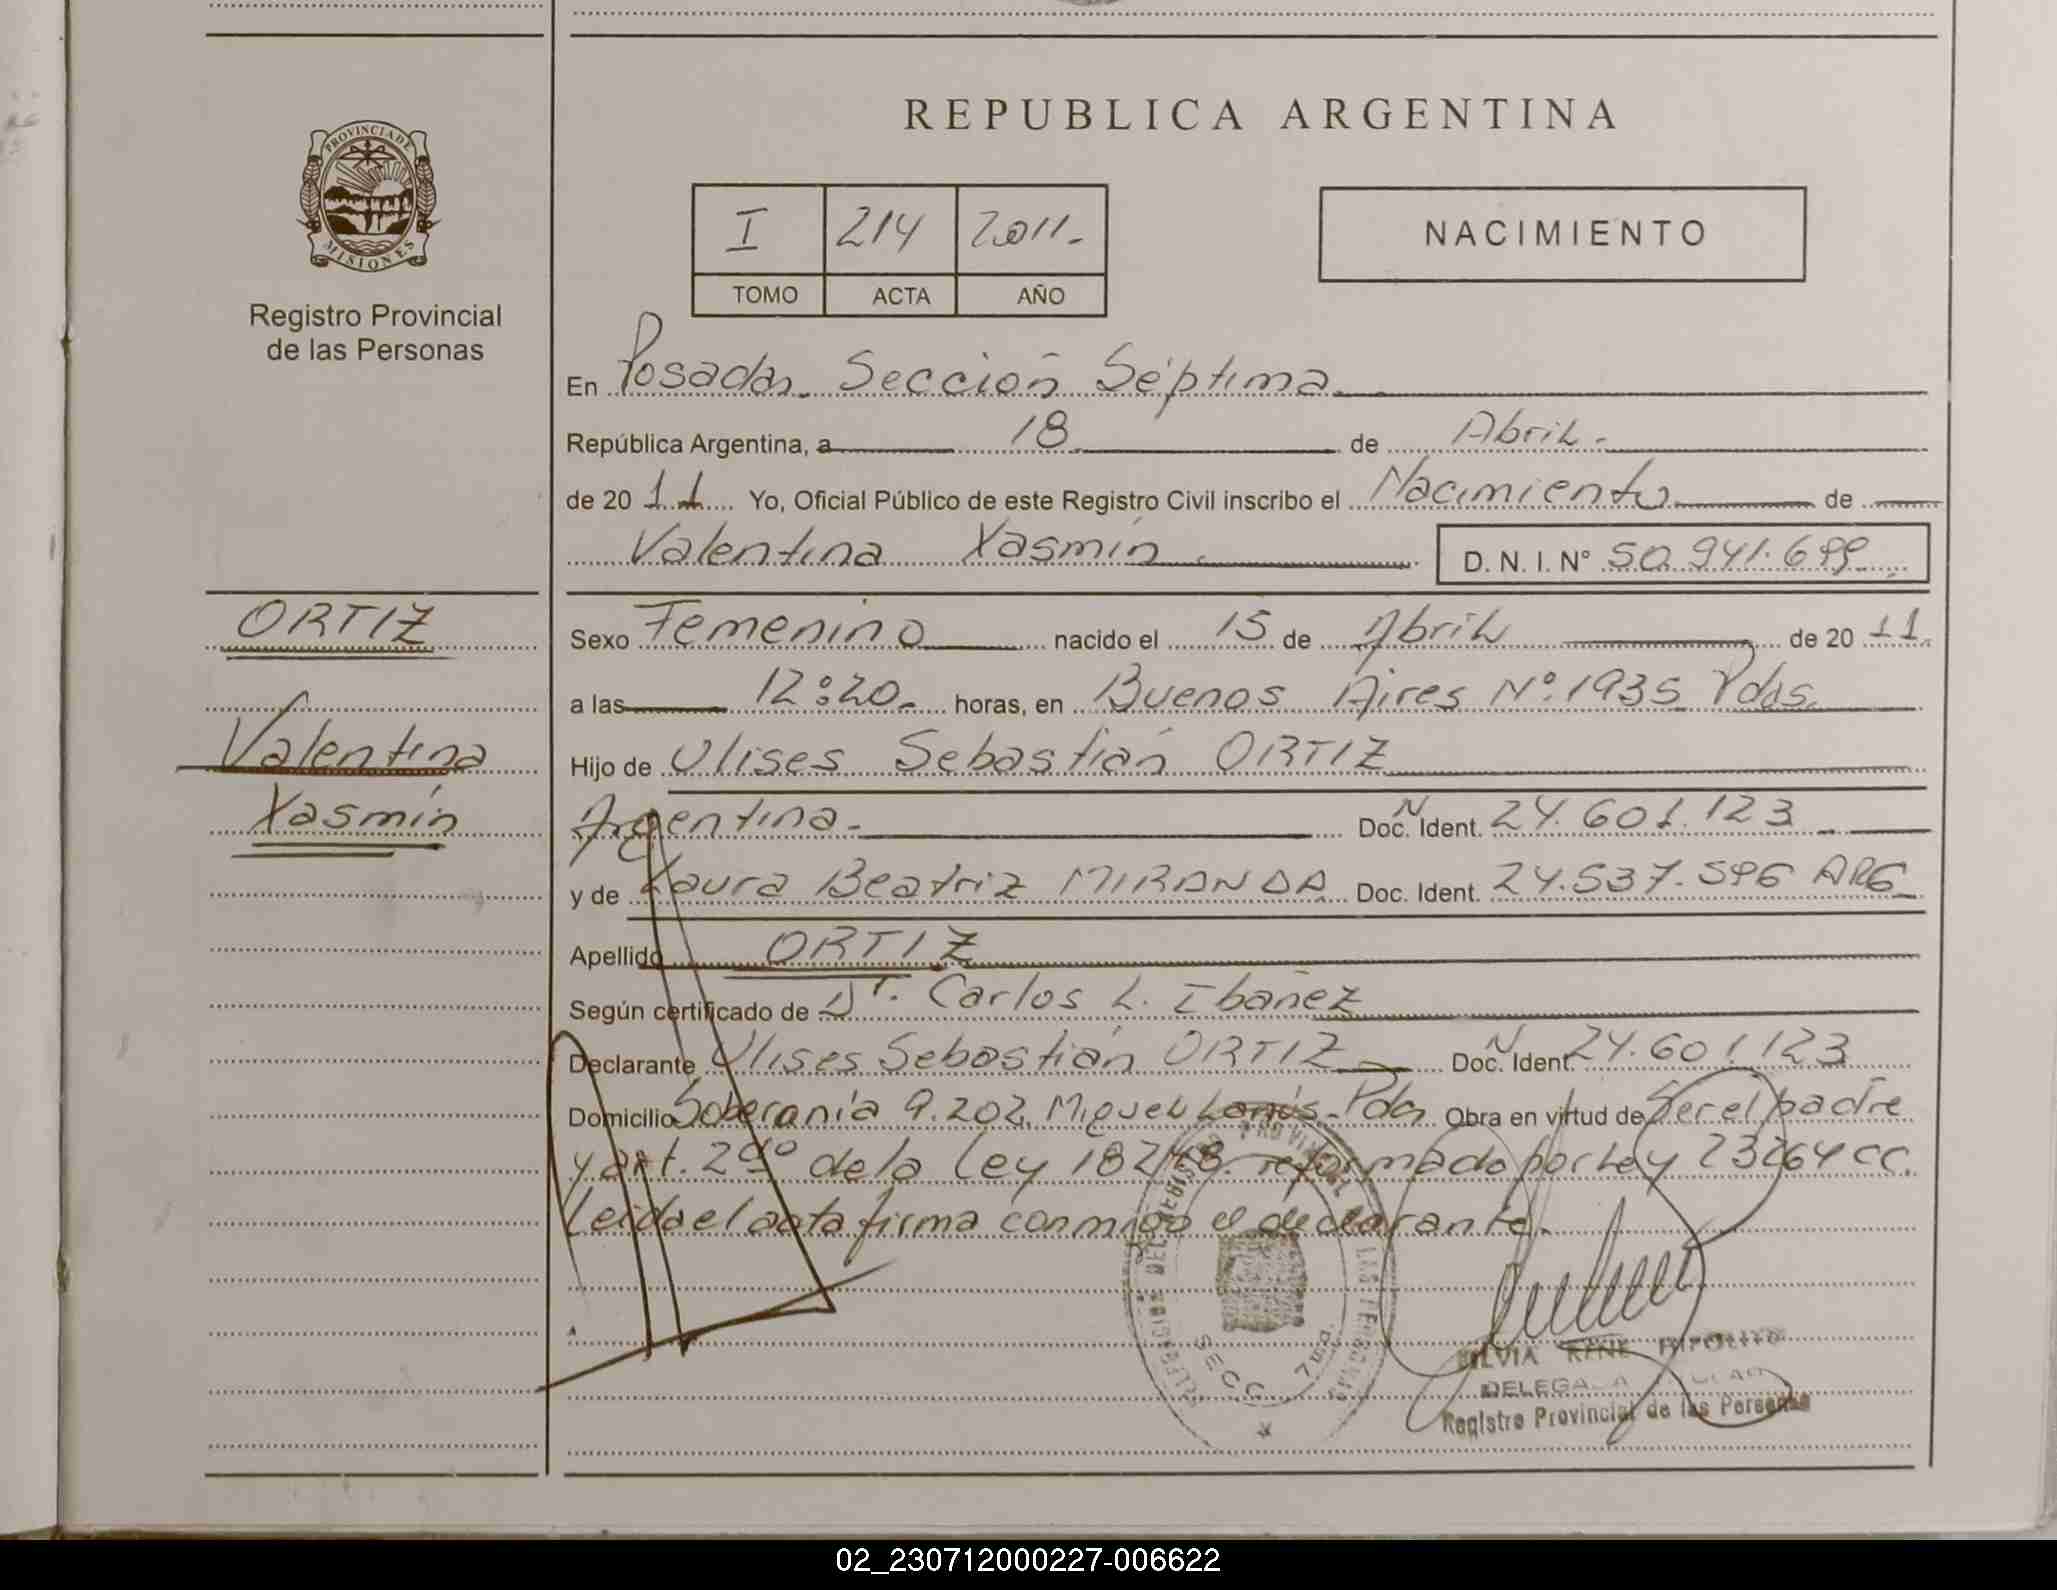 REPUBLICA ARGENTINA
PROVINCIA DE MISIONES
Registro Provincial
de las Personas
I 214 2011.-
TOMO ACTA AÑO
NACIMIENTO
En Posadas. Sección Séptima
República Argentina, a 18 de Abril.-
de 20 11 Yo, Oficial Público de este Registro Civil inscribo el Nacimiento de
Valentina Yasmín D. N. I. N° 50.941.699
ORTIZ
Valentina
Yasmín
Sexo Femenino nacido el 15 de Abril de 20 11
a las 12:20.- horas, en Buenos Aires N°.1935 Pdas.
Hijo de Ulises Sebastián ORTIZ
Argentina.- Doc. N Ident. 24.601.123
y de Laura Beatriz MIRANDA Doc. Ident. 24.537.596 ARG
Apellido ORTIZ
Según certificado de Dr. Carlos L. Ibañez
Declarante Ulises Sebastián ORTIZ Doc. N Ident. 24.601.123
Domicilio Soberanía 9.202. Miguel Lanús-Pdas Obra en virtud de Ser el padre
y art. 2do de la Ley 18248 reformado por Ley 23264 CC.
Leída el acta firma conmigo el declarante.
SECC 7ma
SILVIA RENE HIPOLITO
DELEGADA
Registro Provincial de las Personas
02_230712000227-006622